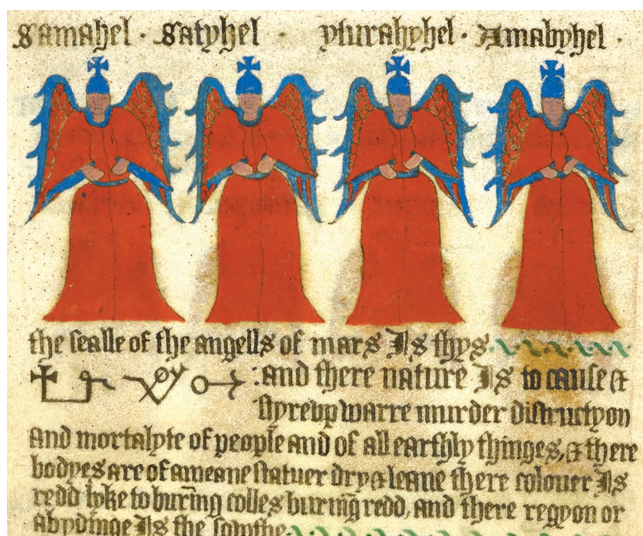 Samahel · Satyhel · yturahyhel · Amabyhel ·
the sealle of the angells of mars Is thys
:and there nature Is to cause &
styrevp warre murder distructyon
and mortalyte of people and of all earthly thinges, & there
bodyes are of a meane statuer dry & leane there colouer Is
redd lyke to burīng colles burīng redd, and there regyon or
abydinge Is the sowthe